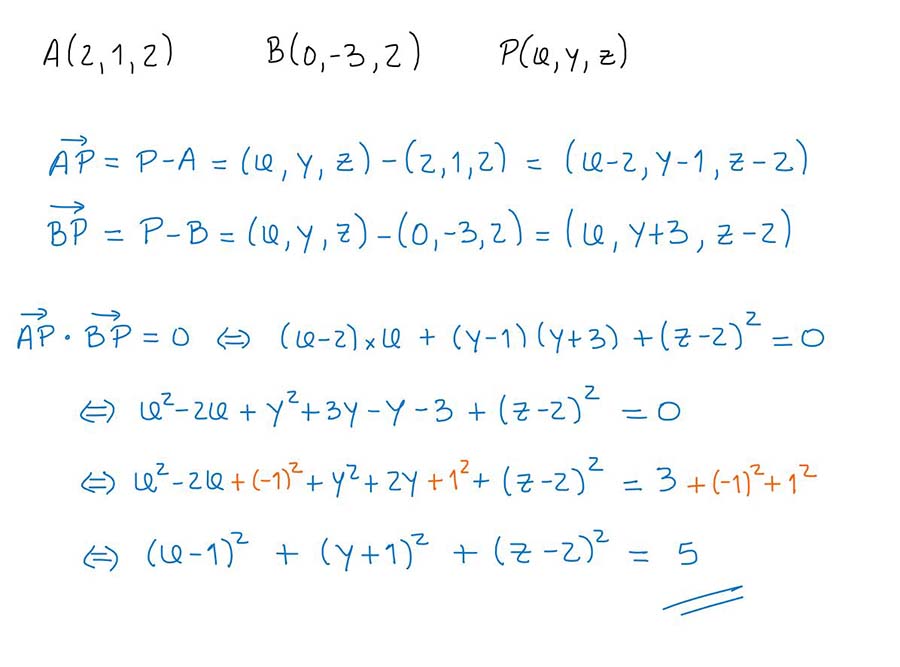 A(2,1,2) B(0,-3,2) P(x,y,z)
AP⃗ = P-A = (x,y,z)-(2,1,2) = (x-2,y-1,z-2)
BP⃗ = P-B = (x,y,z)-(0,-3,2) = (x,y+3,z-2)
AP⃗ · BP⃗ = 0 ⇔ (x-2)×x + (y-1)(y+3) + (z-2)² = 0
⇔ x²-2x + y²+3y-y-3 + (z-2)² = 0
⇔ x²-2x+(-1)²+y²+2y+1²+(z-2)² = 3+(-1)²+1²
⇔ (x-1)² + (y+1)² + (z-2)² = 5